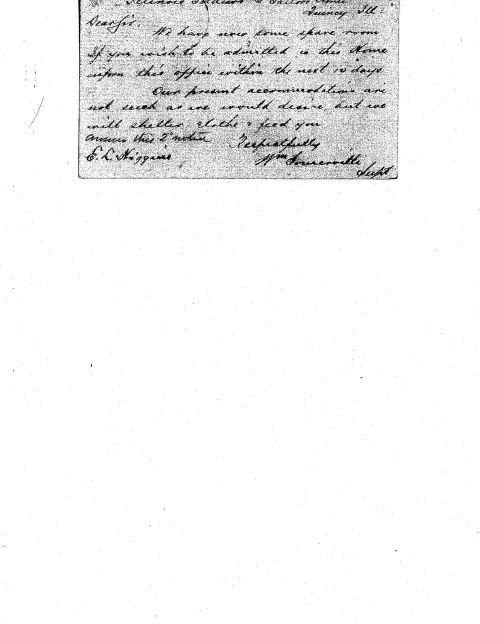 Illinois Soldiers & Sailors Home
Quincy Ill.
Dear Sir:
We have now some spare room
If you wish to be admitted to this Home
inform this office within the next 10 days
Our present accommodations are
not such as we would desire, but we
will shelter, clothe & feed you
answer this
Respectfully
E. L. Higgins
Wm Somerville
Supt